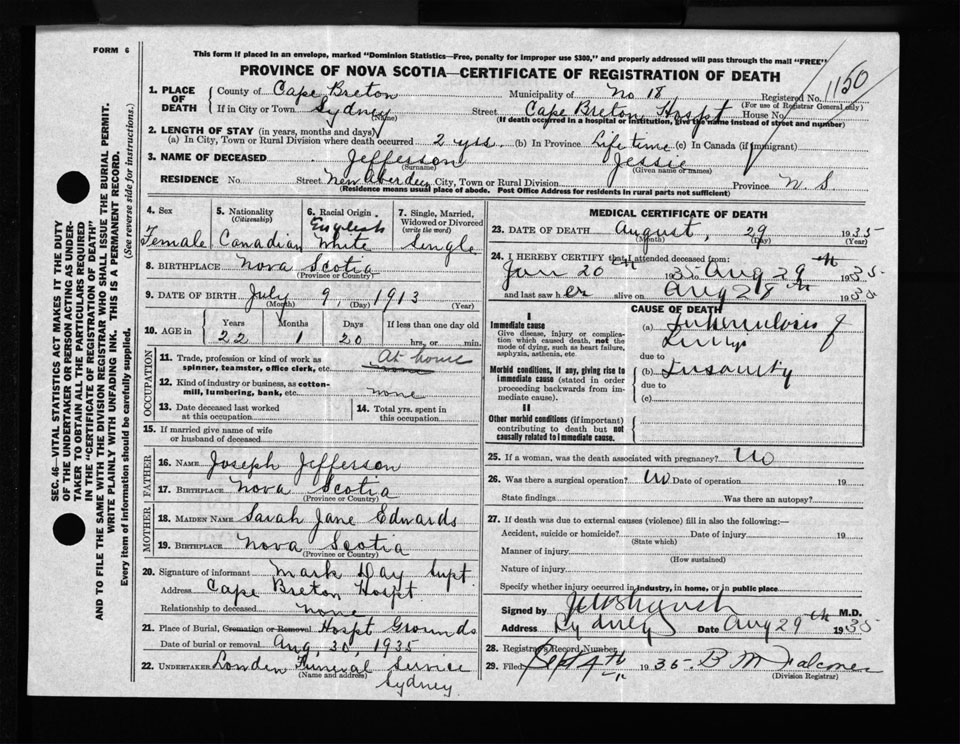 FORM 6
This form if placed in an envelope, marked "Dominion Statistics—Free, penalty for improper use $300," and properly addressed will pass through the mail "FREE"
PROVINCE OF NOVA SCOTIA—CERTIFICATE OF REGISTRATION OF DEATH
1150
1. PLACE OF DEATH County of Cape Breton Municipality of No 18 Registered No. (For use of Registrar General only)
If in City or Town Sydney (Name) Street Cape Breton Hospt House No.
(If death occurred in a hospital or institution, give the name instead of street and number)
2. LENGTH OF STAY (in years, months and days)
(a) In City, Town or Rural Division where death occurred 2 yrs. (b) In Province Life time (c) In Canada (if immigrant)
3. NAME OF DECEASED Jefferson Jessie
(Surname) (Given name or names)
RESIDENCE No. Street New Aberdeen City, Town or Rural Division Province N. S
(Residence means usual place of abode. Post Office Address for residents in rural parts not sufficient)
SEC. 46—VITAL STATISTICS ACT MAKES IT THE DUTY
OF THE UNDERTAKER OR PERSON ACTING AS UNDER-
TAKER TO OBTAIN ALL THE PARTICULARS REQUIRED
IN THE "CERTIFICATE OF REGISTRATION OF DEATH"
AND TO FILE THE SAME WITH THE DIVISION REGISTRAR WHO SHALL ISSUE THE BURIAL PERMIT.
WRITE PLAINLY WITH UNFADING INK. THIS IS A PERMANENT RECORD.
Every item of information should be carefully supplied. (See reverse side for instructions.)
4. Sex 5. Nationality (Citizenship) 6. Racial Origin 7. Single, Married, Widowed or Divorced (write the word)
Female Canadian English White Single
8. BIRTHPLACE Nova Scotia
(Province or Country)
9. DATE OF BIRTH July 9, 1913
(Month) (Day) (Year)
10. AGE in Years Months Days If less than one day old
22 1 20 hrs. or min.
OCCUPATION
11. Trade, profession or kind of work as spinner, teamster, office clerk, etc. At home
12. Kind of industry or business, as cotton-mill, lumbering, bank, etc. none
13. Date deceased last worked at this occupation
14. Total yrs. spent in this occupation
15. If married give name of wife or husband of deceased
FATHER
16. NAME Joseph Jefferson
17. BIRTHPLACE Nova Scotia
(Province or Country)
MOTHER
18. MAIDEN NAME Sarah Jane Edwards
19. BIRTHPLACE Nova Scotia
(Province or Country)
20. Signature of informant Mark Day Supt.
Address Cape Breton Hospt.
Relationship to deceased none
21. Place of Burial, Cremation or Removal Hospt Grounds
Date of burial or removal Aug, 30, 1935
22. UNDERTAKER Lowden Funeral Service
(Name and address) Sydney
MEDICAL CERTIFICATE OF DEATH
23. DATE OF DEATH August, 29 1935
(Month) (Day) (Year)
24. I HEREBY CERTIFY that I attended deceased from:
Jan 20 th 1935 to Aug 29 th 1935
and last saw her alive on Aug 28 th 1935
CAUSE OF DEATH
I
Immediate cause
Give disease, injury or complication which caused death, not the mode of dying, such as heart failure, asphyxia, asthenia, etc.
(a) Tuberculosis of Lungs
due to
Morbid conditions, if any, giving rise to immediate cause (stated in order proceeding backwards from immediate cause).
(b) Insanity
due to
(c)
II
Other morbid conditions (if important) contributing to death but not causally related to immediate cause.
25. If a woman, was the death associated with pregnancy? No
26. Was there a surgical operation? No Date of operation 19
State findings Was there an autopsy?
27. If death was due to external causes (violence) fill in also the following:—
Accident, suicide or homicide? Date of injury 19
(State which)
Manner of injury
(How sustained)
Nature of injury
Specify whether injury occurred in industry, in home, or in public place
Signed by M.D.
Address Sydney Date Aug 29th 1935
28. Registrar's Record Number
29. Filed Sept 4th 1935 B M Falconer
(Division Registrar)